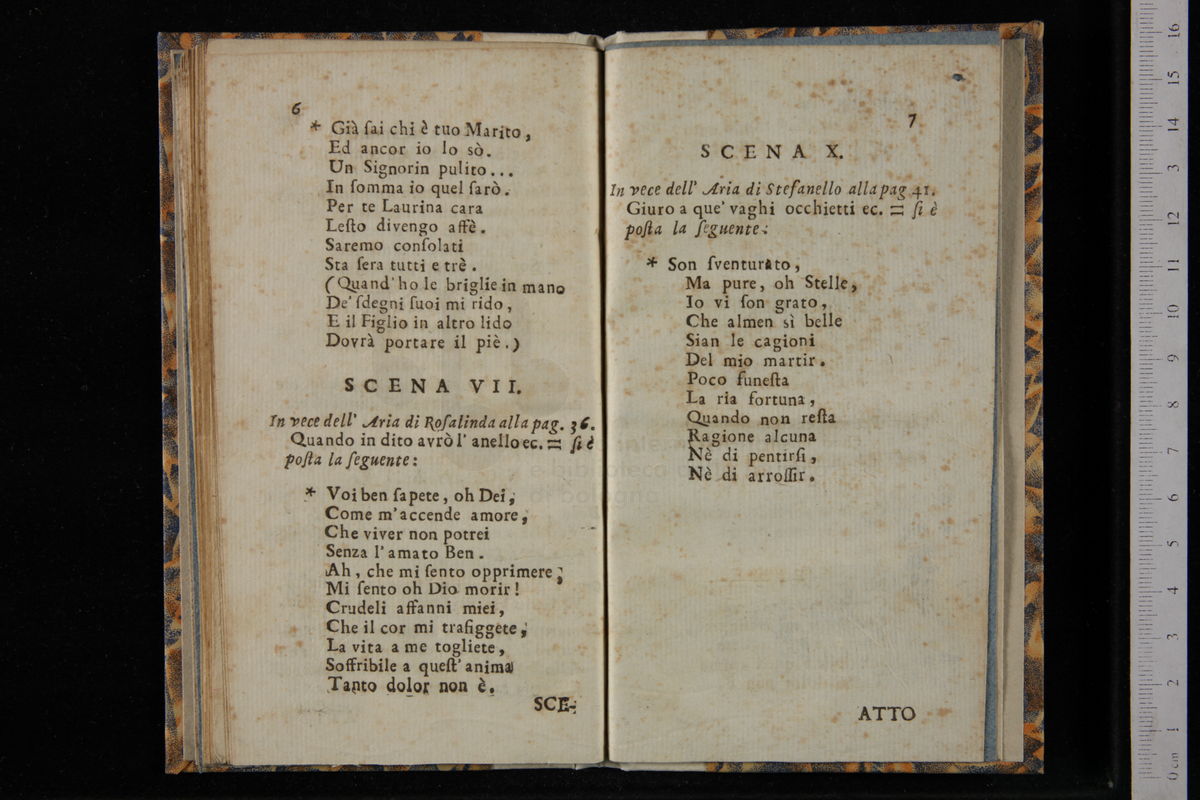 6
* Già ſai chi è tuo Marito,
Ed ancor io lo sò.
Un Signorin pulito...
In ſomma io quel ſarò.
Per te Laurina cara
Leſto divengo affè.
Saremo conſolati
Sta ſera tutti e trè.
(Quand' ho le briglie in mano
De' ſdegni ſuoi mi rido,
E il Figlio in altro lido
Dovrà portare il piè.)
SCENA VII.
In vece dell' Aria di Roſalinda alla pag. 36.
Quando in dito avrò l' anello ec. = ſi è
poſta la ſeguente:
* Voi ben ſapete, oh Dei,
Come m'accende amore,
Che viver non potrei
Senza l'amato Ben.
Ah, che mi ſento opprimere;
Mi ſento oh Dio morir!
Crudeli affanni miei,
Che il cor mi trafiggete,
La vita a me togliete,
Soffribile a queſt' anima
Tanto dolor non è.
SCE-
7
SCENA X.
In vece dell' Aria di Stefanello alla pag 41.
Giuro a que' vaghi occhietti ec. = ſi è
poſta la ſeguente:
* Son ſventurato,
Ma pure, oh Stelle,
Io vi ſon grato,
Che almen sì belle
Sian le cagioni
Del mio martir.
Poco funeſta
La ria fortuna,
Quando non reſta
Ragione alcuna
Nè di pentirſi,
Nè di arroſſir.
ATTO
e biblioteca
di bologna
0 cm 1 2 3 4 5 6 7 8 9 10 11 12 13 14 15 16